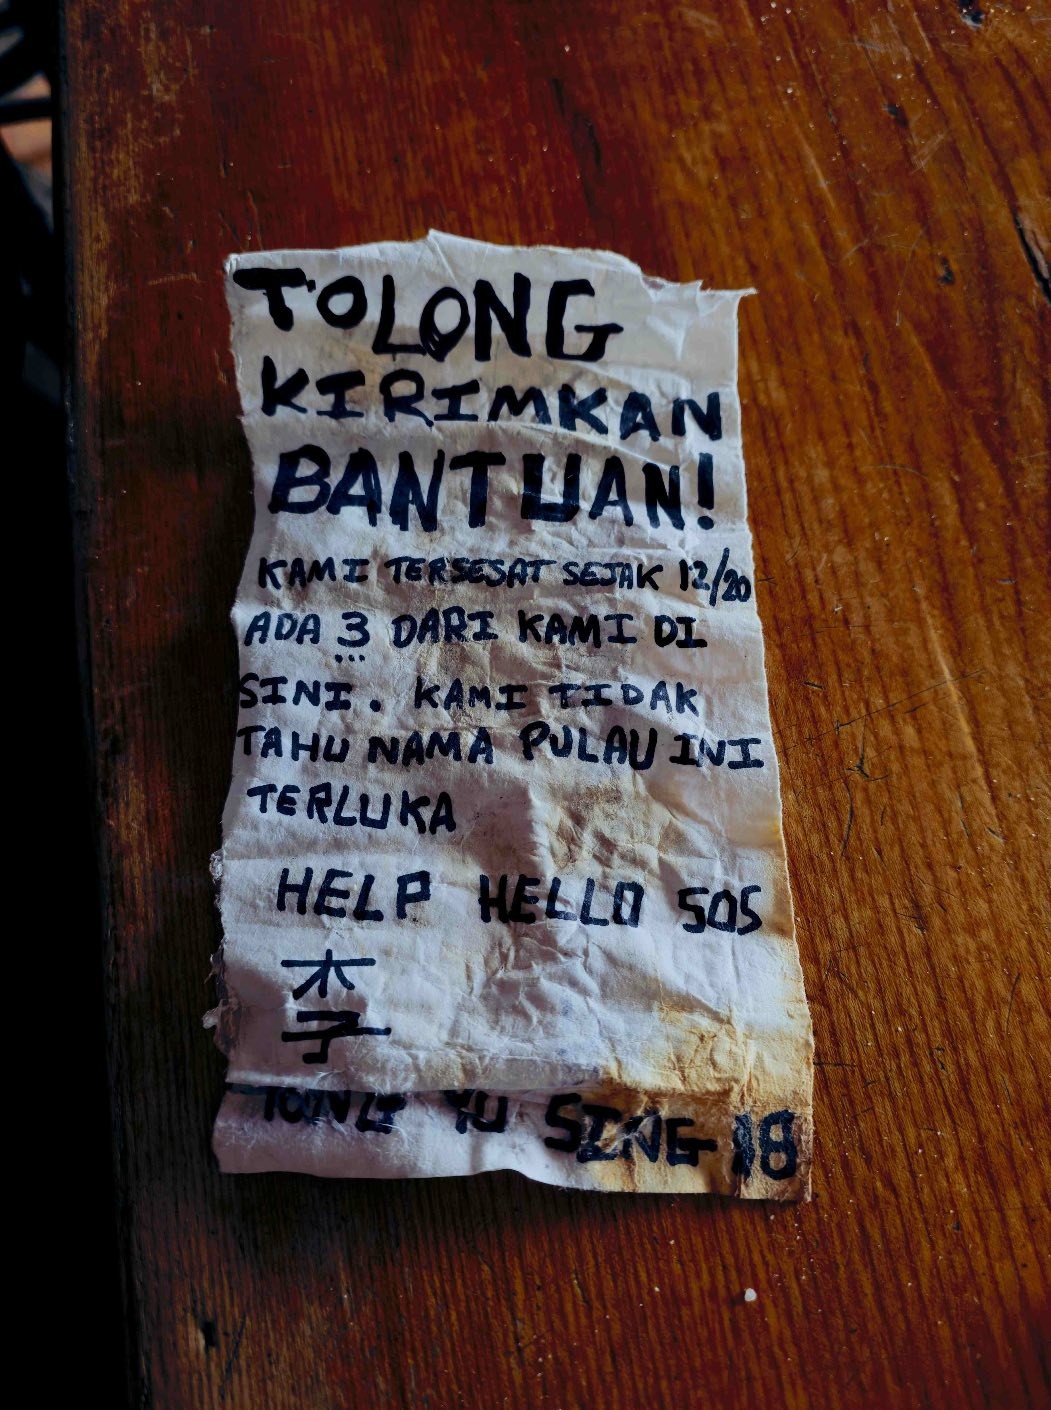 TOLONG
KIRIMKAN
BANTUAN!
KAMI TERSESAT SEJAK 12/20
ADA 3 DARI KAMI DI
SINI. KAMI TIDAK
TAHU NAMA PULAU INI
TERLUKA
HELP HELLO SOS
李
YU SING 18